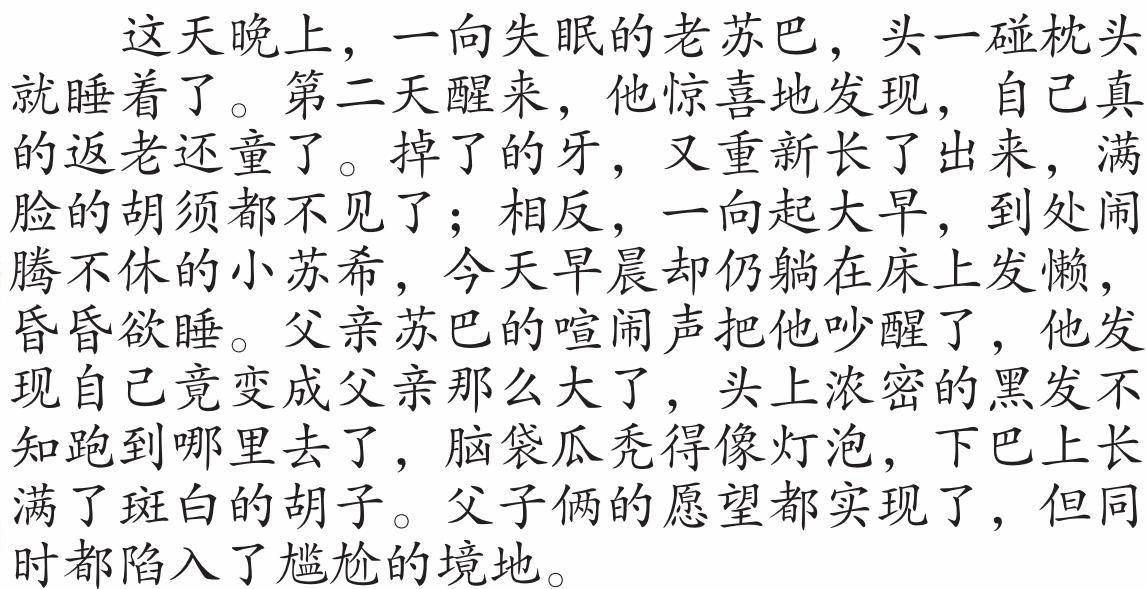 这天晚上，一向失眠的老苏巴，头一碰枕头
就睡着了。第二天醒来，他惊喜地发现，自己真
的返老还童了。掉了的牙，又重新长了出来，满
脸的胡须都不见了；相反，一向起大早，到处闹
腾不休的小苏希，今天早晨却仍躺在床上发懒，
昏昏欲睡。父亲苏巴的喧闹声把他吵醒了，他发
现自己竟变成父亲那么大了，头上浓密的黑发不
知跑到哪里去了，脑袋瓜秃得像灯泡，下巴上长
满了斑白的胡子。父子俩的愿望都实现了，但同
时都陷入了尴尬的境地。